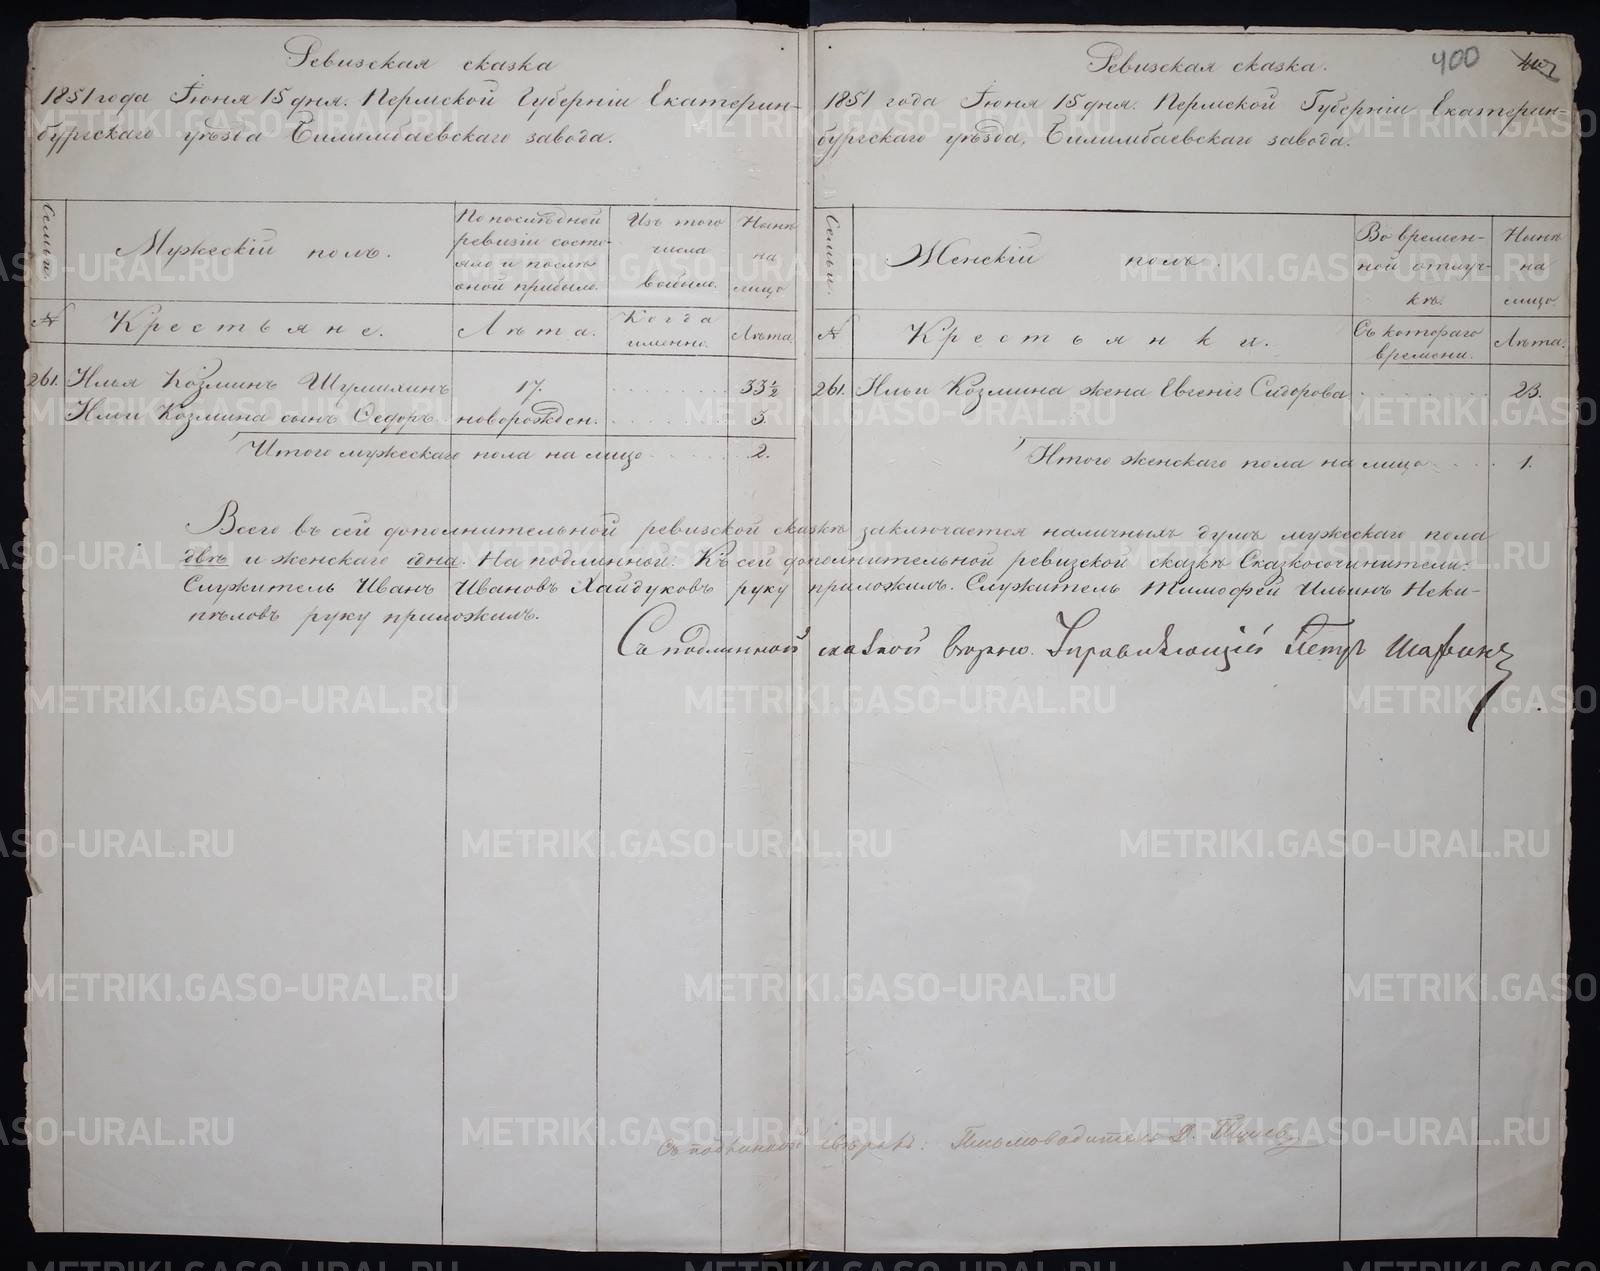 Ревизская сказка
1851 года Іюня 15 дня. Пермской Губерніи Екатерин-
бургскаго уѣзда Билимбаевскаго завода.
Семьи.
Мужескій полъ.
По последней
ревизіи состо-
яло и послѣ
оной прибыло.
Изъ того
числа
выбыло.
Нынѣ
на
лицо
№
Крестьяне.
Лѣта.
Когда
именно.
Лѣта.
261. Илья Козминъ Шумихинъ 17. 33½
Ильи Козмина сынъ Ѳедоръ новорожден. 3.
Итого мужескаго пола на лицо 2.
Ревизская сказка.
400
1851 года Іюня 15 дня. Пермской Губерніи Екатерин-
бургскаго уѣзда, Билимбаевскаго завода.
Семьи.
Женскій полъ.
Во времен-
ной отлуч-
кѣ.
Нынѣ
на
лицо
№
Крестьянки.
Съ котораго
времени.
Лѣта.
261. Ильи Козмина жена Евгенія Сидорова 23.
Итого женскаго пола на лицо 1.
Всего въ сей дополнительной ревизской сказкѣ заключается наличныхъ душъ мужескаго пола
двѣ и женскаго одна. На подлинной: Къ сей дополнительной ревизской сказкѣ Сказкосочинители:
Служитель Иванъ Ивановъ Хайдуковъ руку приложилъ. Служитель Тимофей Ильинъ Неки-
пѣловъ руку приложилъ.
Съ подлинной сказкой вѣрно. Управляющій Петръ Шаринъ
Съ подлинной свѣрявъ: Письмоводитель Д.
METRIKI.GASO-URAL.RU